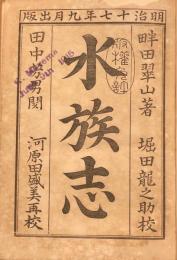 明治十七年九月出版
畔田翠山著
堀田龍之助校
水族志
田中芳男閲
河原田盛美再校